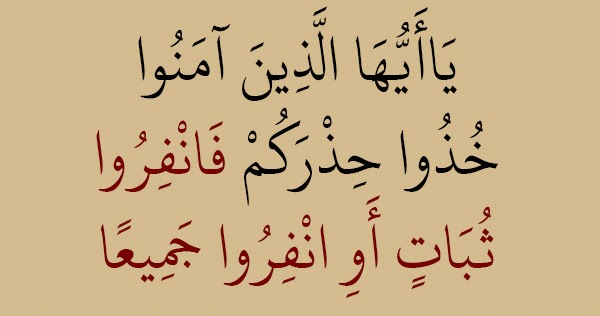 يَاأَيُّهَا الَّذِينَ آمَنُوا
خُذُوا حِذْرَكُمْ فَانْفِرُوا
ثُبَاتٍ أَوِ انْفِرُوا جَمِيعًا